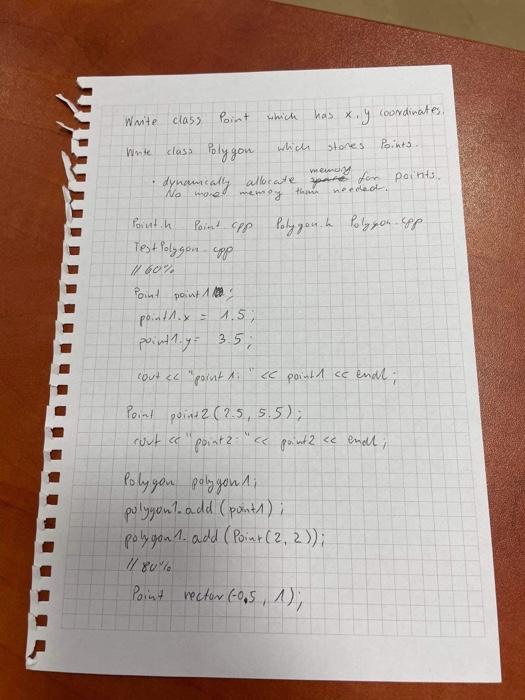 Write class Point which has x, y coordinates.
Write class Polygon which stores Points.
• dynamically allocate memory for points.
No more memory than needed.
Point.h Point.cpp Polygon.h Polygon.cpp
TestPolygon.cpp
// 60%
Point point1;
point1.x = 1.5;
point1.y = 3.5;
cout << "point 1: " << point1 << endl;
Point point2(2.5, 5.5);
cout << "point2: " << point2 << endl;
Polygon polygon1;
polygon1.add(point1);
polygon1.add(Point(2, 2));
// 80%
Point vector(-0.5, 1);